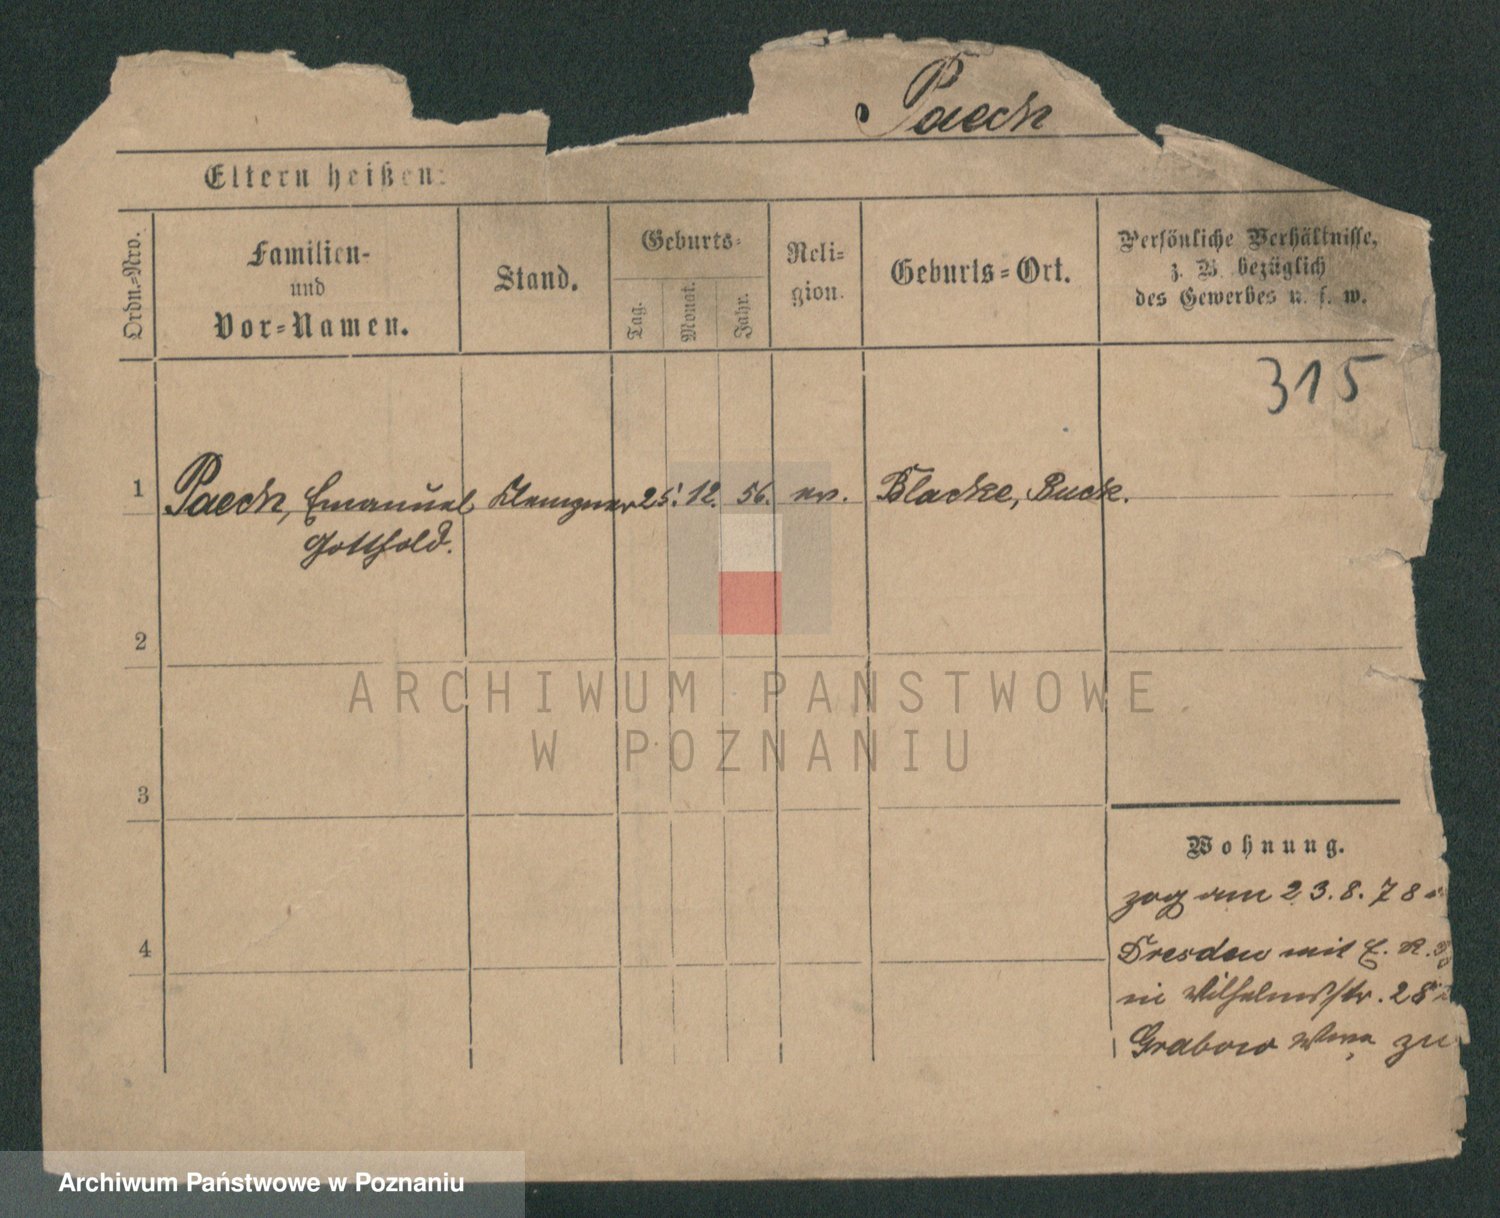 Paech
Eltern heißen:
Ordn.-Nro.
Familien-
und
Vor-Namen.
Stand.
Geburts-
Tag.
Monat.
Jahr.
Reli-
gion.
Geburts-Ort.
Persönliche Verhältnisse,
z. B. bezüglich
des Gewerbes u. s. w.
315
1 Paech, Emanuel Klempner 25. 12. 56. ev. Blacke, Buck.
Gotthold.
2
ARCHIWUM PAŃSTWOWE
W POZNANIU
3
Wohnung.
zog am 23.8.78
4
Dresden mit
in Wilhelmsstr. 28
Grabow zu
Archiwum Państwowe w Poznaniu